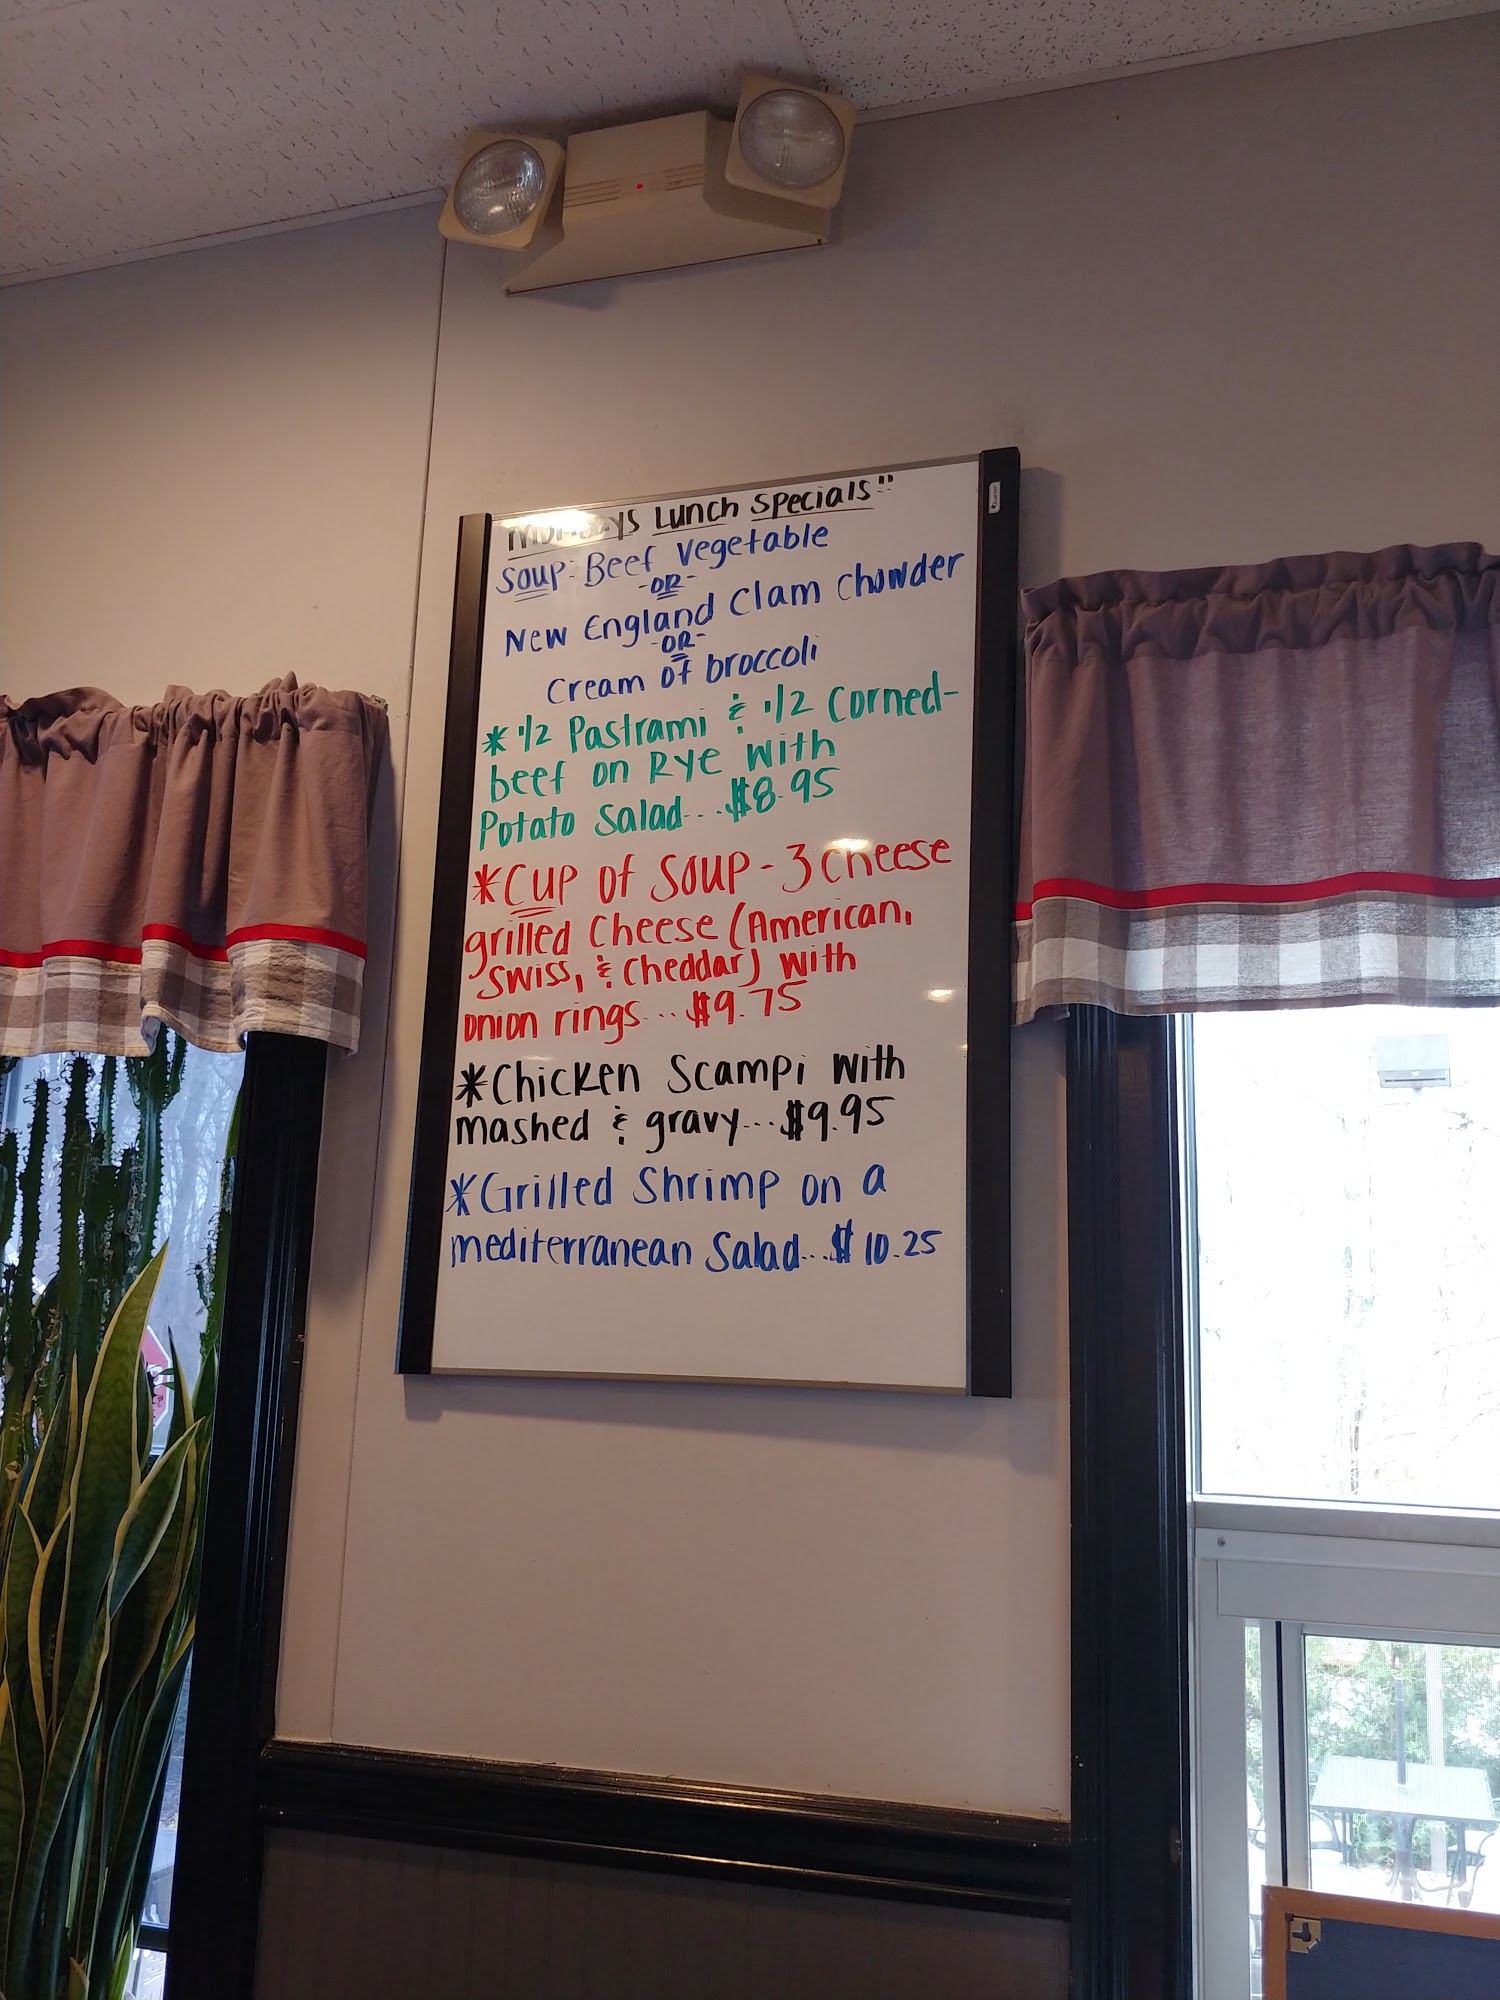 Mondays Lunch Specials"
Soup: Beef Vegetable
-OR-
New England Clam Chowder
-OR-
Cream of broccoli
* 1/2 Pastrami & 1/2 Corned-
beef on Rye with
Potato Salad...$8.95
*Cup of Soup - 3 cheese
grilled Cheese (American,
Swiss, & Cheddar) with
onion rings...$9.75
*Chicken Scampi with
mashed & gravy...$9.95
*Grilled Shrimp on a
mediterranean Salad...$10.25